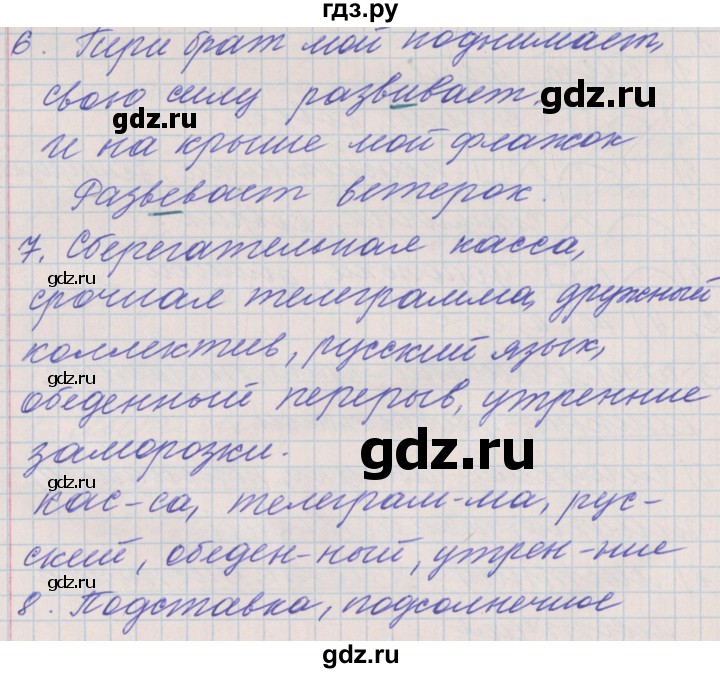 гдз.ру
6. Гири брат мой поднимает,
свою силу развивает.
gdz.ru
И на крыше мой флажок
Развевает ветерок.
7. Сберегательная касса,
gdz.ru
срочная телеграмма, дружный
коллектив, русский язык,
gdz.ru
обеденный перерыв, утренние
gdz.ru
заморозки.
gdz.ru
кас-са, телеграм-ма, рус-
ский, обеден-ный, утрен-ние
gdz.ru
8. Подставка, подсолнечное
gdz.ru